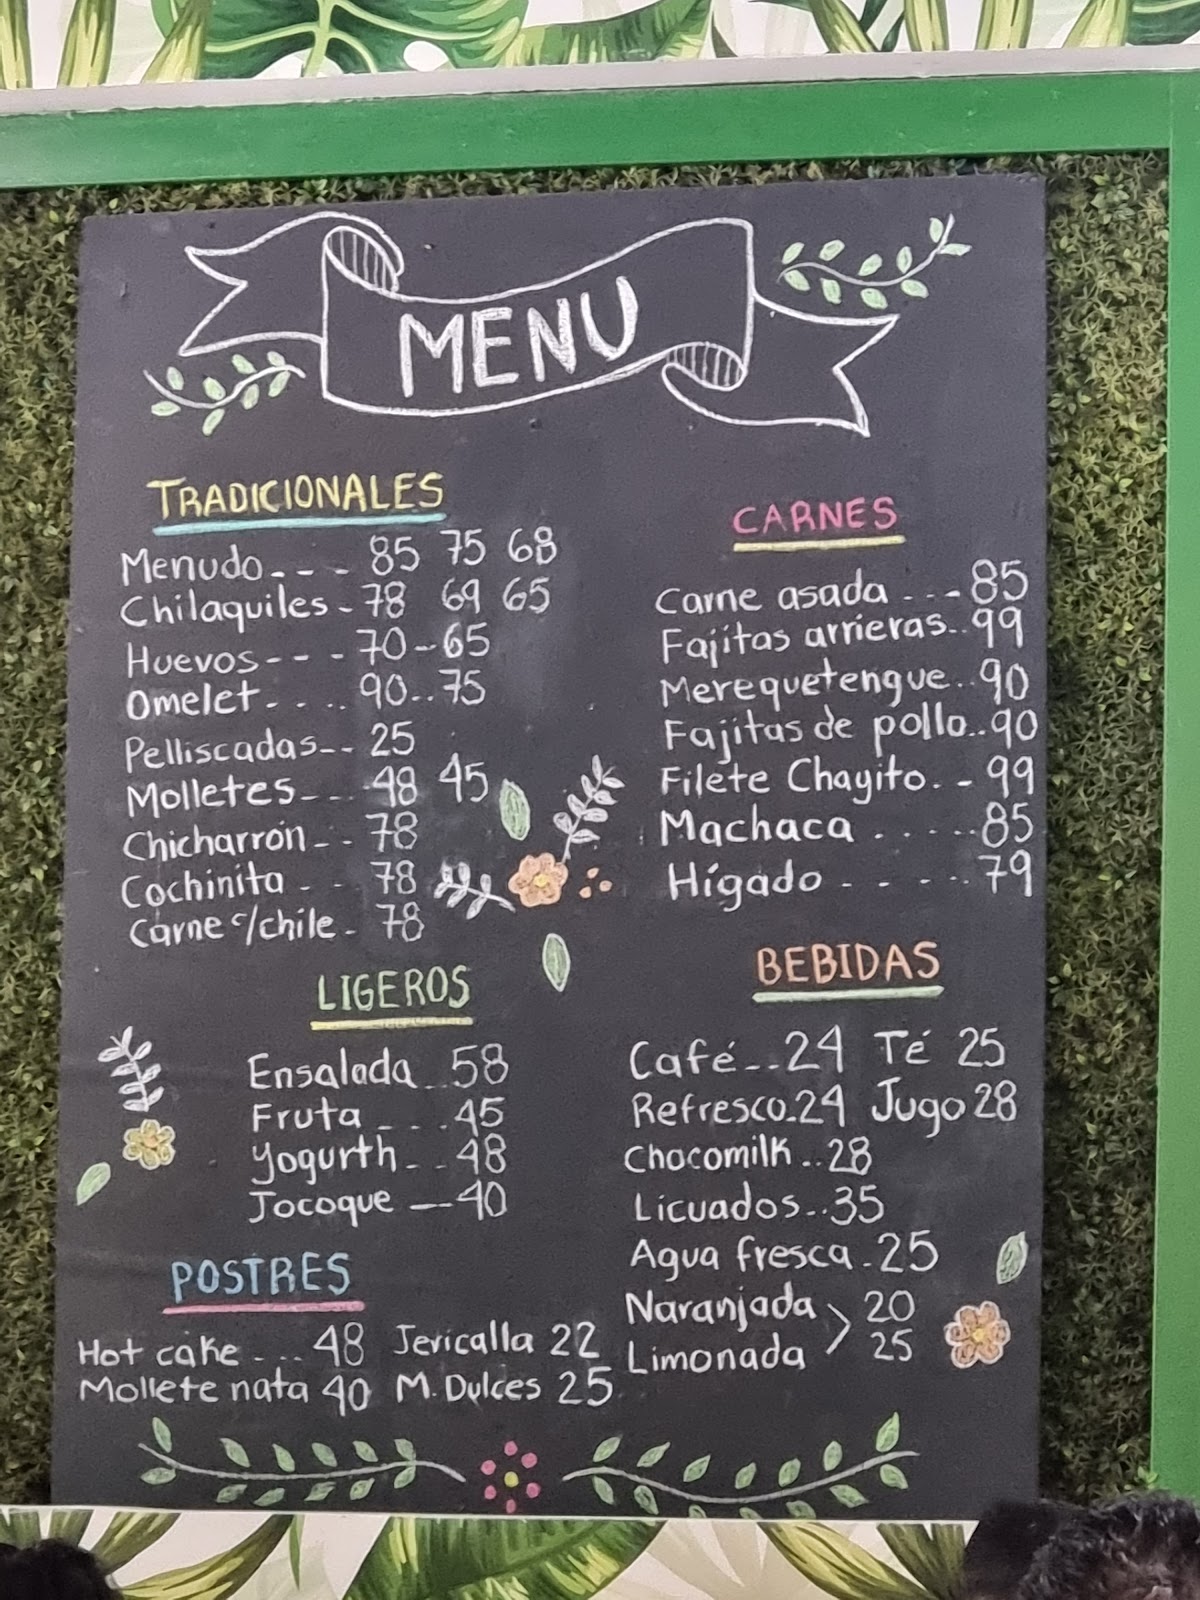 MENU
TRADICIONALES
Menudo. - - - 85 75 68
Chilaquiles - 78 69 65
Huevos - - - 70 - 65
Omelet. . . . 90..75
Pelliscadas - - 25
Molletes - - - 48 45
Chicharrón - - 78
Cochinita . - - 78
Carne c/chile - 78
CARNES
Carne asada . - - 85
Fajitas arrieras..99
Merequetengue..90
Fajitas de pollo..90
Filete Chayito. - 99
Machaca . . . . . 85
Hígado . - . - . 79
LIGEROS
Ensalada ..58
Fruta - . . . 45
Yogurth - . . 48
Jocoque — 40
POSTRES
Hot cake . ... 48 Jericalla 22
Mollete nata 40 M. Dulces 25
BEBIDAS
Café - . . 24 Té 25
Refresco.24 Jugo 28
Chocomilk . . 28
Licuados - . . 35
Agua fresca . 25
Naranjada > 20
Limonada 25